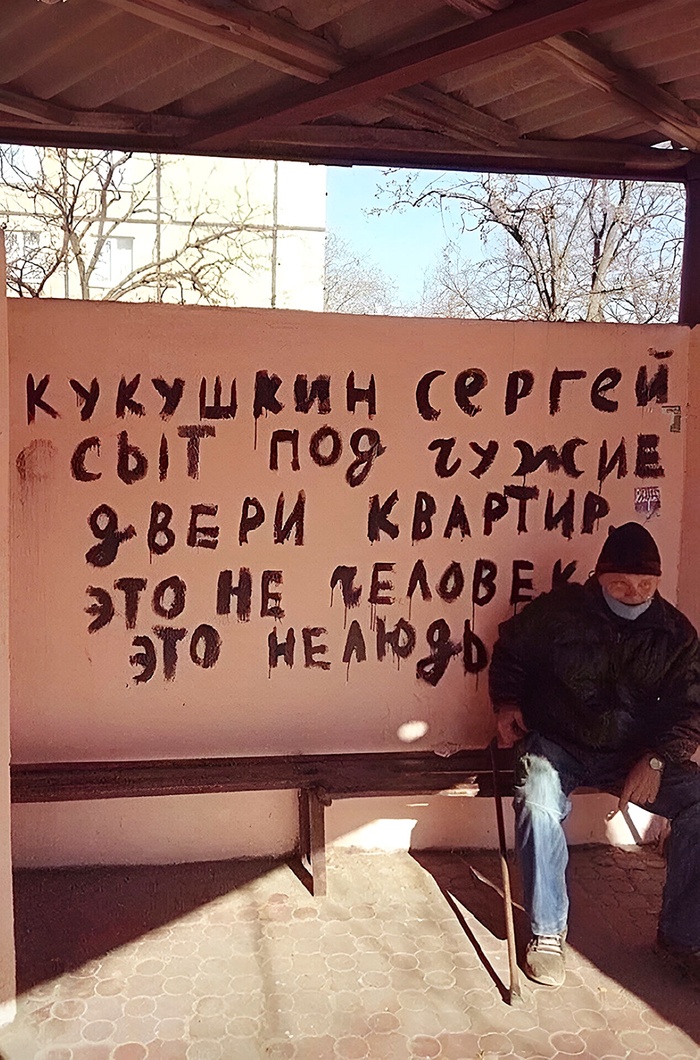 КУКУШКИН СЕРГЕЙ
СЫТ ПОД ЧУЖИЕ
ДВЕРИ КВАРТИР
ЭТО НЕ ЧЕЛОВЕК
ЭТО НЕЛЮДЬ